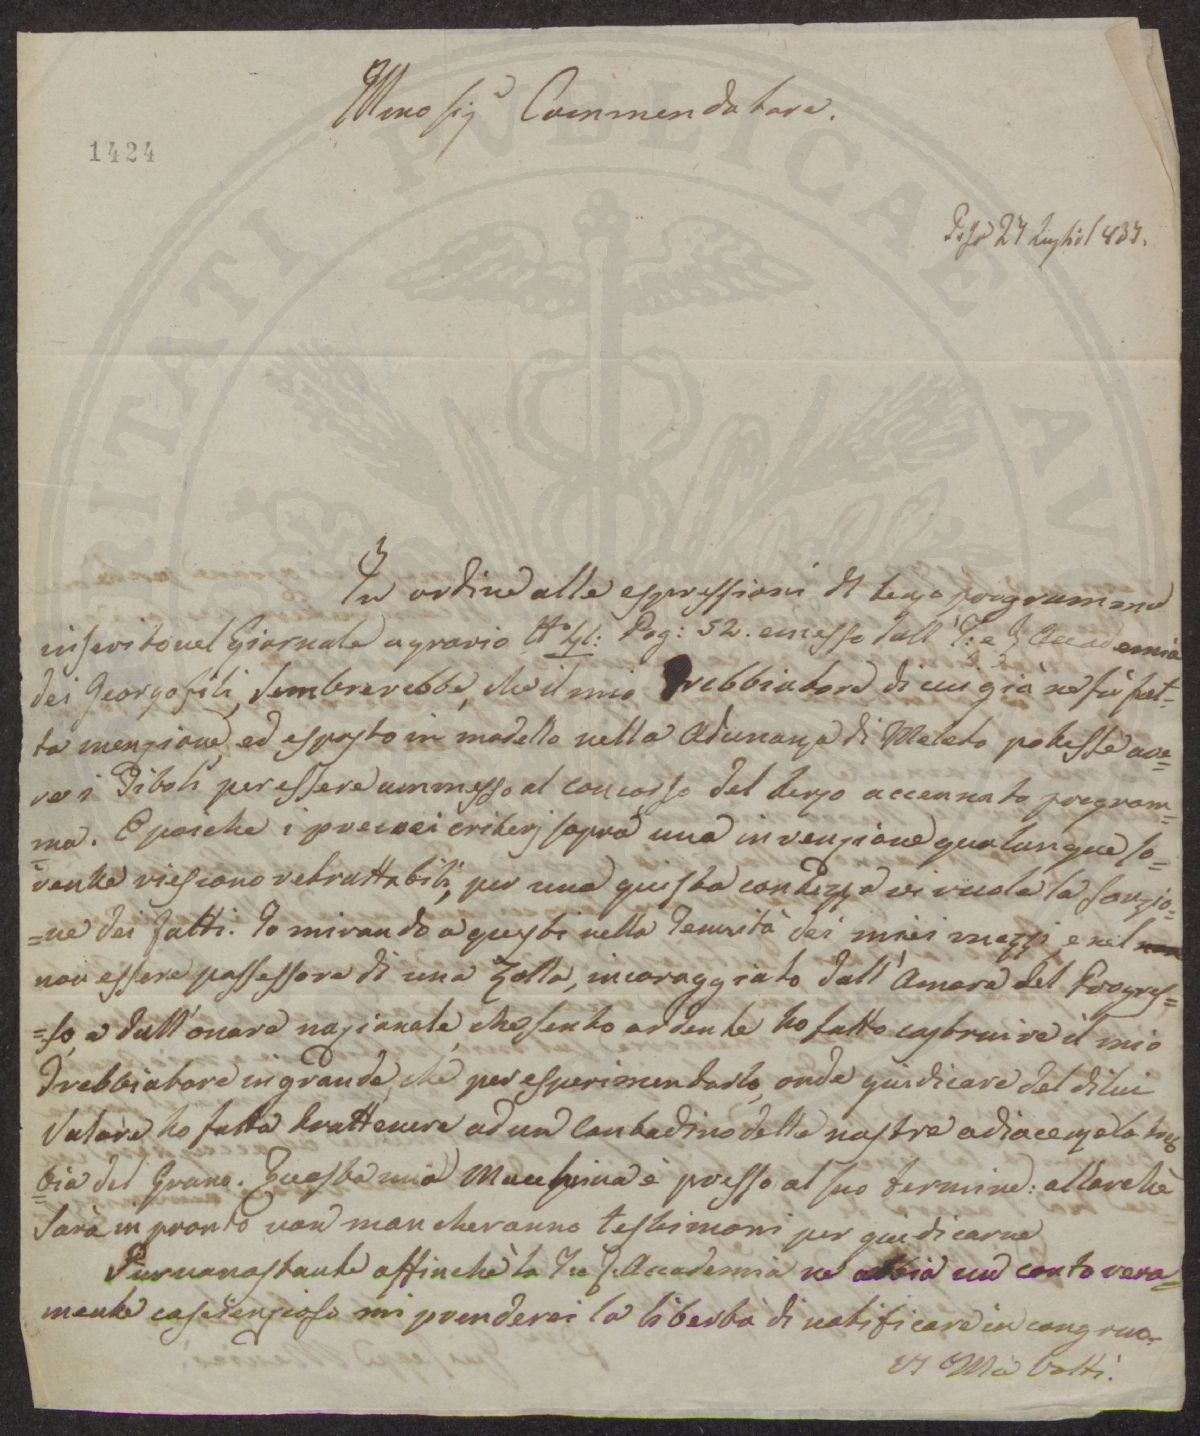 Illmo Sig.e Commendatore.
1424
Pisa 27 Luglio 1837.
In ordine alle espressioni del terzo programma
inserito nel Giornale agrario Pag: 52. emesso dall' I: e R Accademia
dei Georgofili, sembrerebbe, che il mio Trebbiatore di cui già ne fù fat=
ta menzione, ed esposto in modello nella Adunanza di Meleto potesse ave=
re i Titoli per essere ammesso al concorso del terzo accennato program=
ma. E poiche i precoci criterj sopra una invenzione qualunque so=
vente riescono retrattabili, per una giusta contezza vi vuole la sanzio=
=ne dei fatti. Io mirando a questi nella tenuità dei miei mezzi, e nel
non essere possessore di una Zolla, incoraggiato dall' Amore del Progres=
=so, e dall' onore nazionale, che sento ardente ho fatto costruire il mio
Trebbiatore in grande, che per esperimentarlo, onde giudicare del di lui
Valore ho fatto trattenere ad un Contadino delle nostre adiacenze la treb
=bia del Grano. Questa mia Macchina è presso al suo termine: allorchè
sarà in pronto non mancheranno testimoni per giudicarne
Purnonostante affinchè la I e R. Accademia ne abbia un conto vera=
mente coscienzioso mi prenderei la libertà di notificare in congrua
VS Ill.a